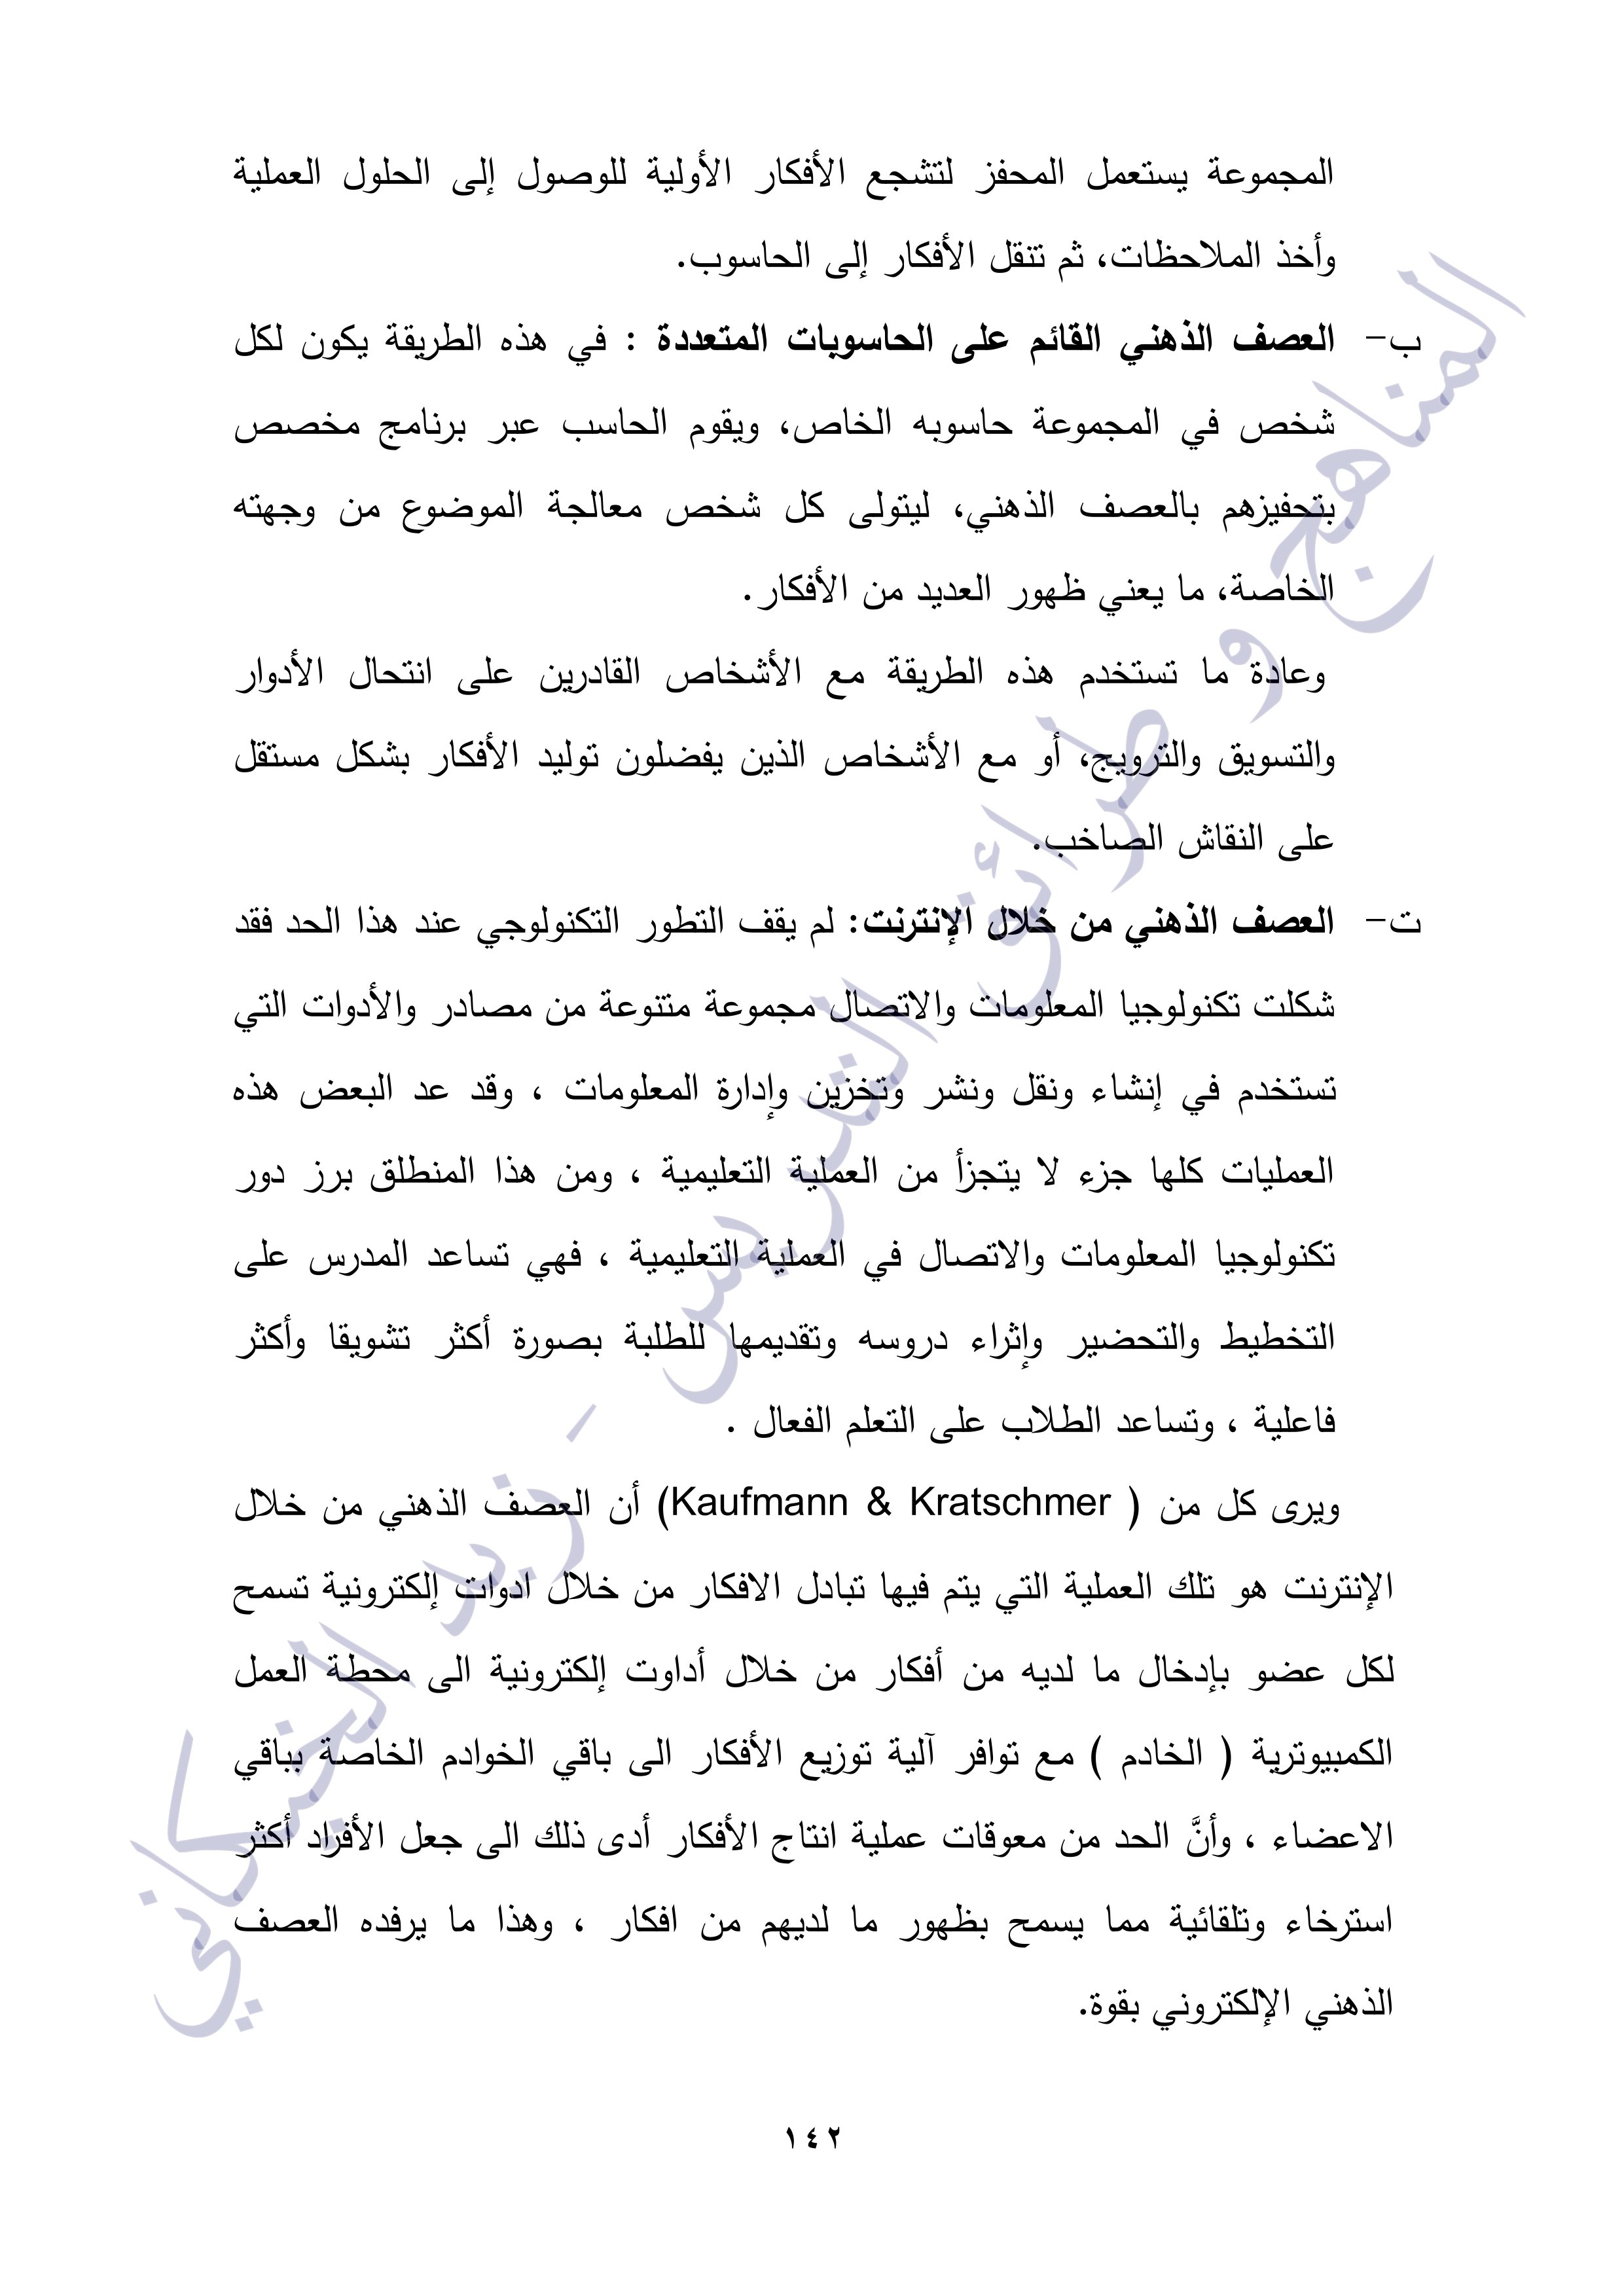 المجموعة يستعمل المحفز لتشجع الأفكار الأولية للوصول إلى الحلول العملية
وأخذ الملاحظات، ثم تنقل الأفكار إلى الحاسوب.
ب- العصف الذهني القائم على الحاسوبات المتعددة : في هذه الطريقة يكون لكل
شخص في المجموعة حاسوبه الخاص، ويقوم الحاسب عبر برنامج مخصص
بتحفيزهم بالعصف الذهني، ليتولى كل شخص معالجة الموضوع من وجهته
الخاصة، ما يعني ظهور العديد من الأفكار.
وعادة ما تستخدم هذه الطريقة مع الأشخاص القادرين على انتحال الأدوار
والتسويق والترويج، أو مع الأشخاص الذين يفضلون توليد الأفكار بشكل مستقل
على النقاش الصاخب.
ت- العصف الذهني من خلال الإنترنت: لم يقف التطور التكنولوجي عند هذا الحد فقد
شكلت تكنولوجيا المعلومات والاتصال مجموعة متنوعة من مصادر والأدوات التي
تستخدم في إنشاء ونقل ونشر وتخزين وإدارة المعلومات ، وقد عد البعض هذه
العمليات كلها جزء لا يتجزأ من العملية التعليمية ، ومن هذا المنطلق برز دور
تكنولوجيا المعلومات والاتصال في العملية التعليمية ، فهي تساعد المدرس على
التخطيط والتحضير وإثراء دروسه وتقديمها للطلبة بصورة أكثر تشويقا وأكثر
فاعلية ، وتساعد الطلاب على التعلم الفعال .
ويرى كل من ( Kaufmann & Kratschmer) أن العصف الذهني من خلال
الإنترنت هو تلك العملية التي يتم فيها تبادل الافكار من خلال ادوات إلكترونية تسمح
لكل عضو بإدخال ما لديه من أفكار من خلال أداوت إلكترونية الى محطة العمل
الكمبيوترية ( الخادم ) مع توافر آلية توزيع الأفكار الى باقي الخوادم الخاصة بباقي
الاعضاء ، وأنَّ الحد من معوقات عملية انتاج الأفكار أدى ذلك الى جعل الأفراد أكثر
استرخاء وتلقائية مما يسمح بظهور ما لديهم من افكار ، وهذا ما يرفده العصف
الذهني الإلكتروني بقوة.
المناهج و طرائق التدريس - زيد الخيكاني
١٤٢